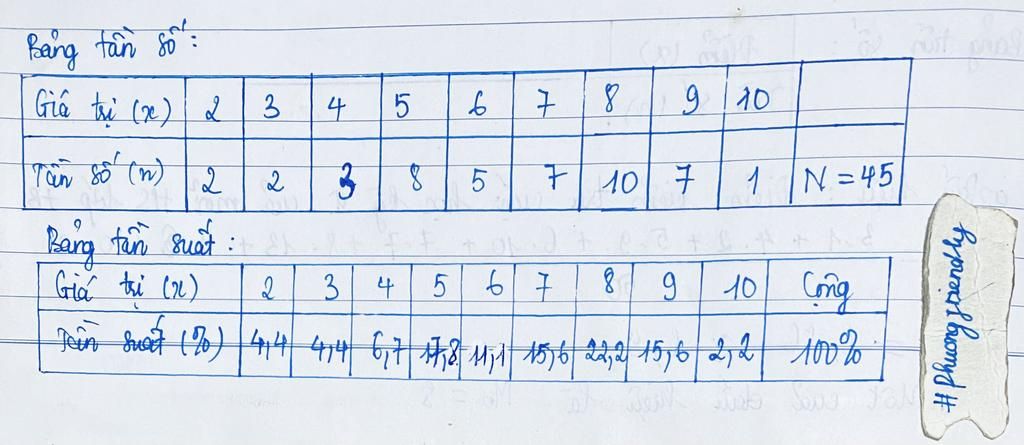 Bảng tần số:
Giá trị (x) 2 3 4 5 6 7 8 9 10
Tần số (n) 2 2 3 8 5 7 10 7 1 N = 45
Bảng tần suất:
Giá trị (x) 2 3 4 5 6 7 8 9 10 Cộng
Tần suất (%) 4,4 4,4 6,7 17,8 11,1 15,6 22,2 15,6 2,2 100%